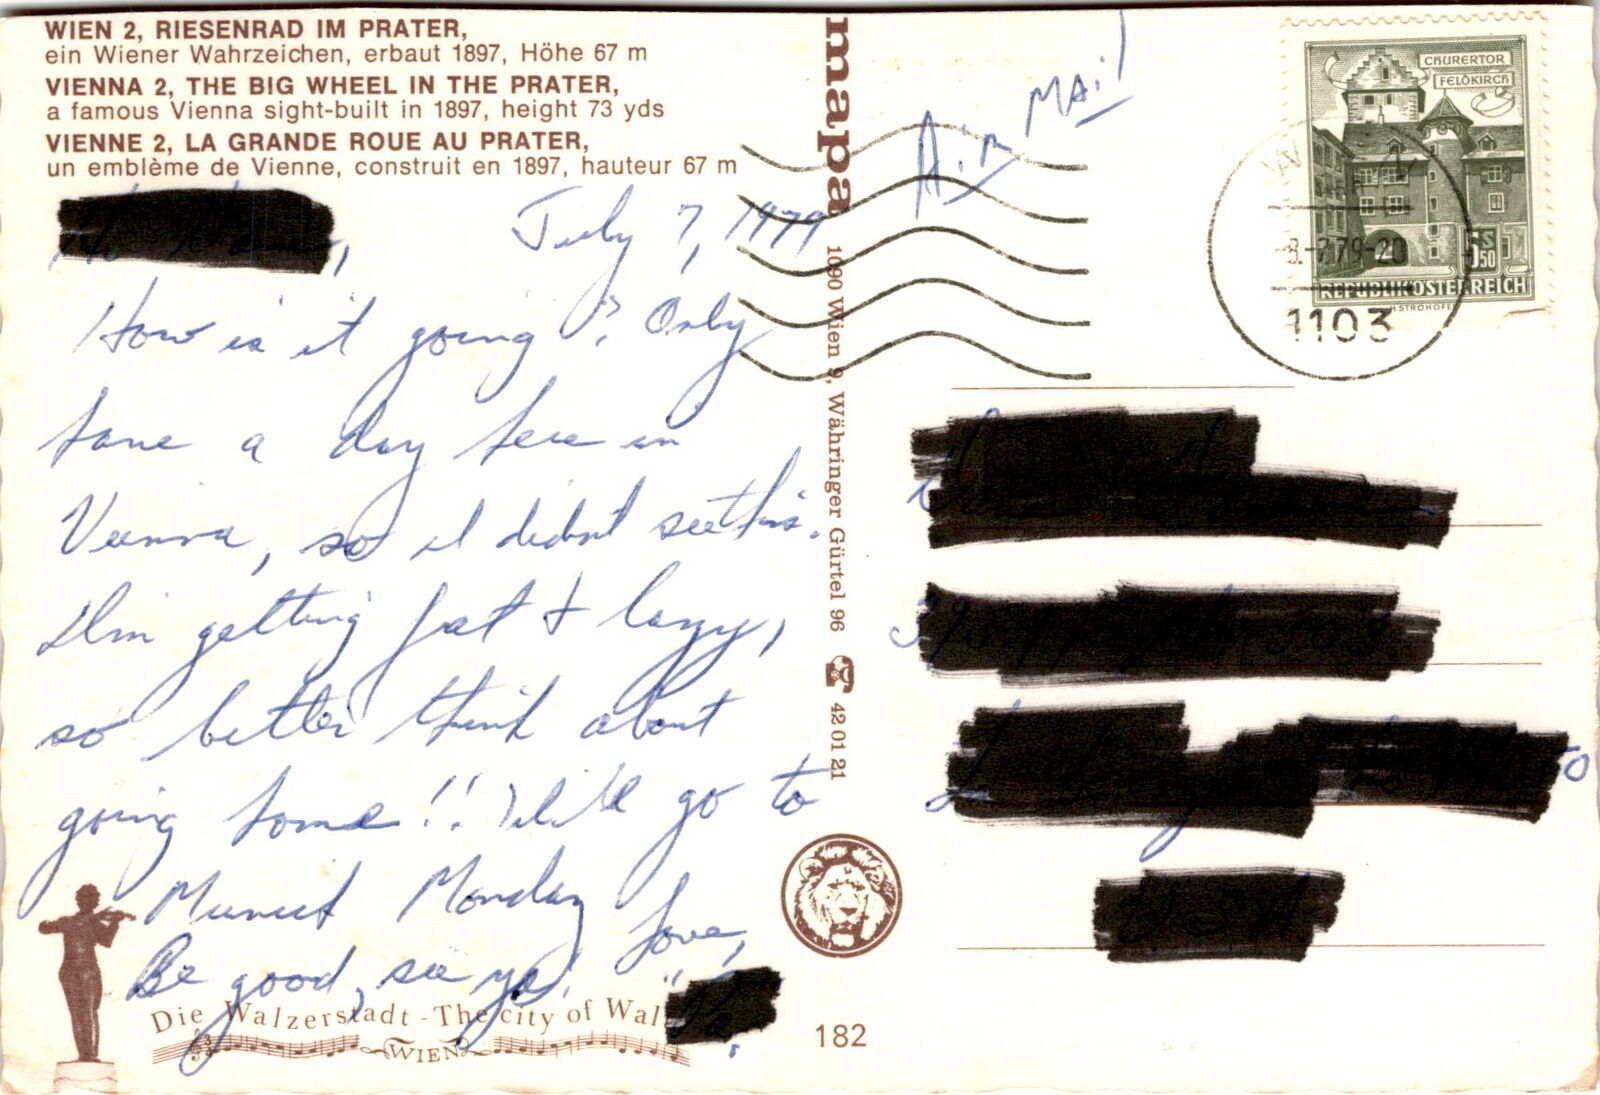 WIEN 2, RIESENRAD IM PRATER,
ein Wiener Wahrzeichen, erbaut 1897, Höhe 67 m
VIENNA 2, THE BIG WHEEL IN THE PRATER,
a famous Vienna sight-built in 1897, height 73 yds
VIENNE 2, LA GRANDE ROUE AU PRATER,
un emblème de Vienne, construit en 1897, hauteur 67 m
July 7, 1979
How is it going? Only
have a day here in
Vienna, so I didnt see this.
I'm getting fat & lazy,
so better think about
going home!! We'll go to
Munich Monday
Be good, see ya! Love,
Die Walzerstadt - The city of Wal
WIEN
mapa 1090 Wien 9, Währinger Gürtel 96 42 01 21
182
Air MAil
CHURERTOR
FELDKIRCH
S 5,50
REPUBLIK ÖSTERREICH
H.STROHOFE
8.-7.79-20
1103